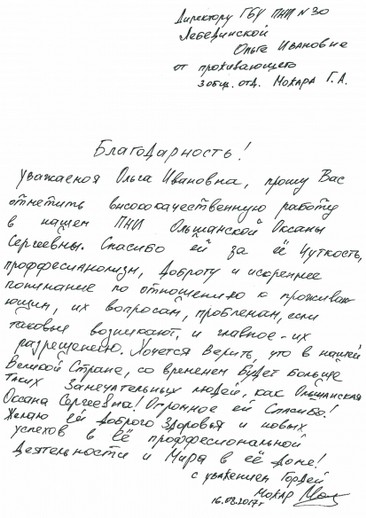 Директору ГБУ ПНИ №30
Лебединской
Ольге Ивановне
от проживающего
3 общ. отд. Мокара Г.А.
Благодарность!
Уважаемая Ольга Ивановна, прошу Вас
отметить высококачественную работу
в нашем ПНИ Ольшанской Оксаны
Сергеевны. Спасибо ей за её чуткость,
проффесианолизм, доброту и искреннее
понимание по отношению к прожива-
ющим, их вопросам, проблемам, если
таковые возникают, и главное - их
разрешению. Хочется верить, что в нашей
Великой Стране, со временем будет больше
таких замечательных людей, как Ольшанская
Оксана Сергеевна! Огромное ей Спасибо!
Желаю Ей Доброго Здоровья и новых
успехов в Её проффесиональной
Деятельности и Мира в её Доме!
с уважением Гордей
Мокар
16.08.2017г.